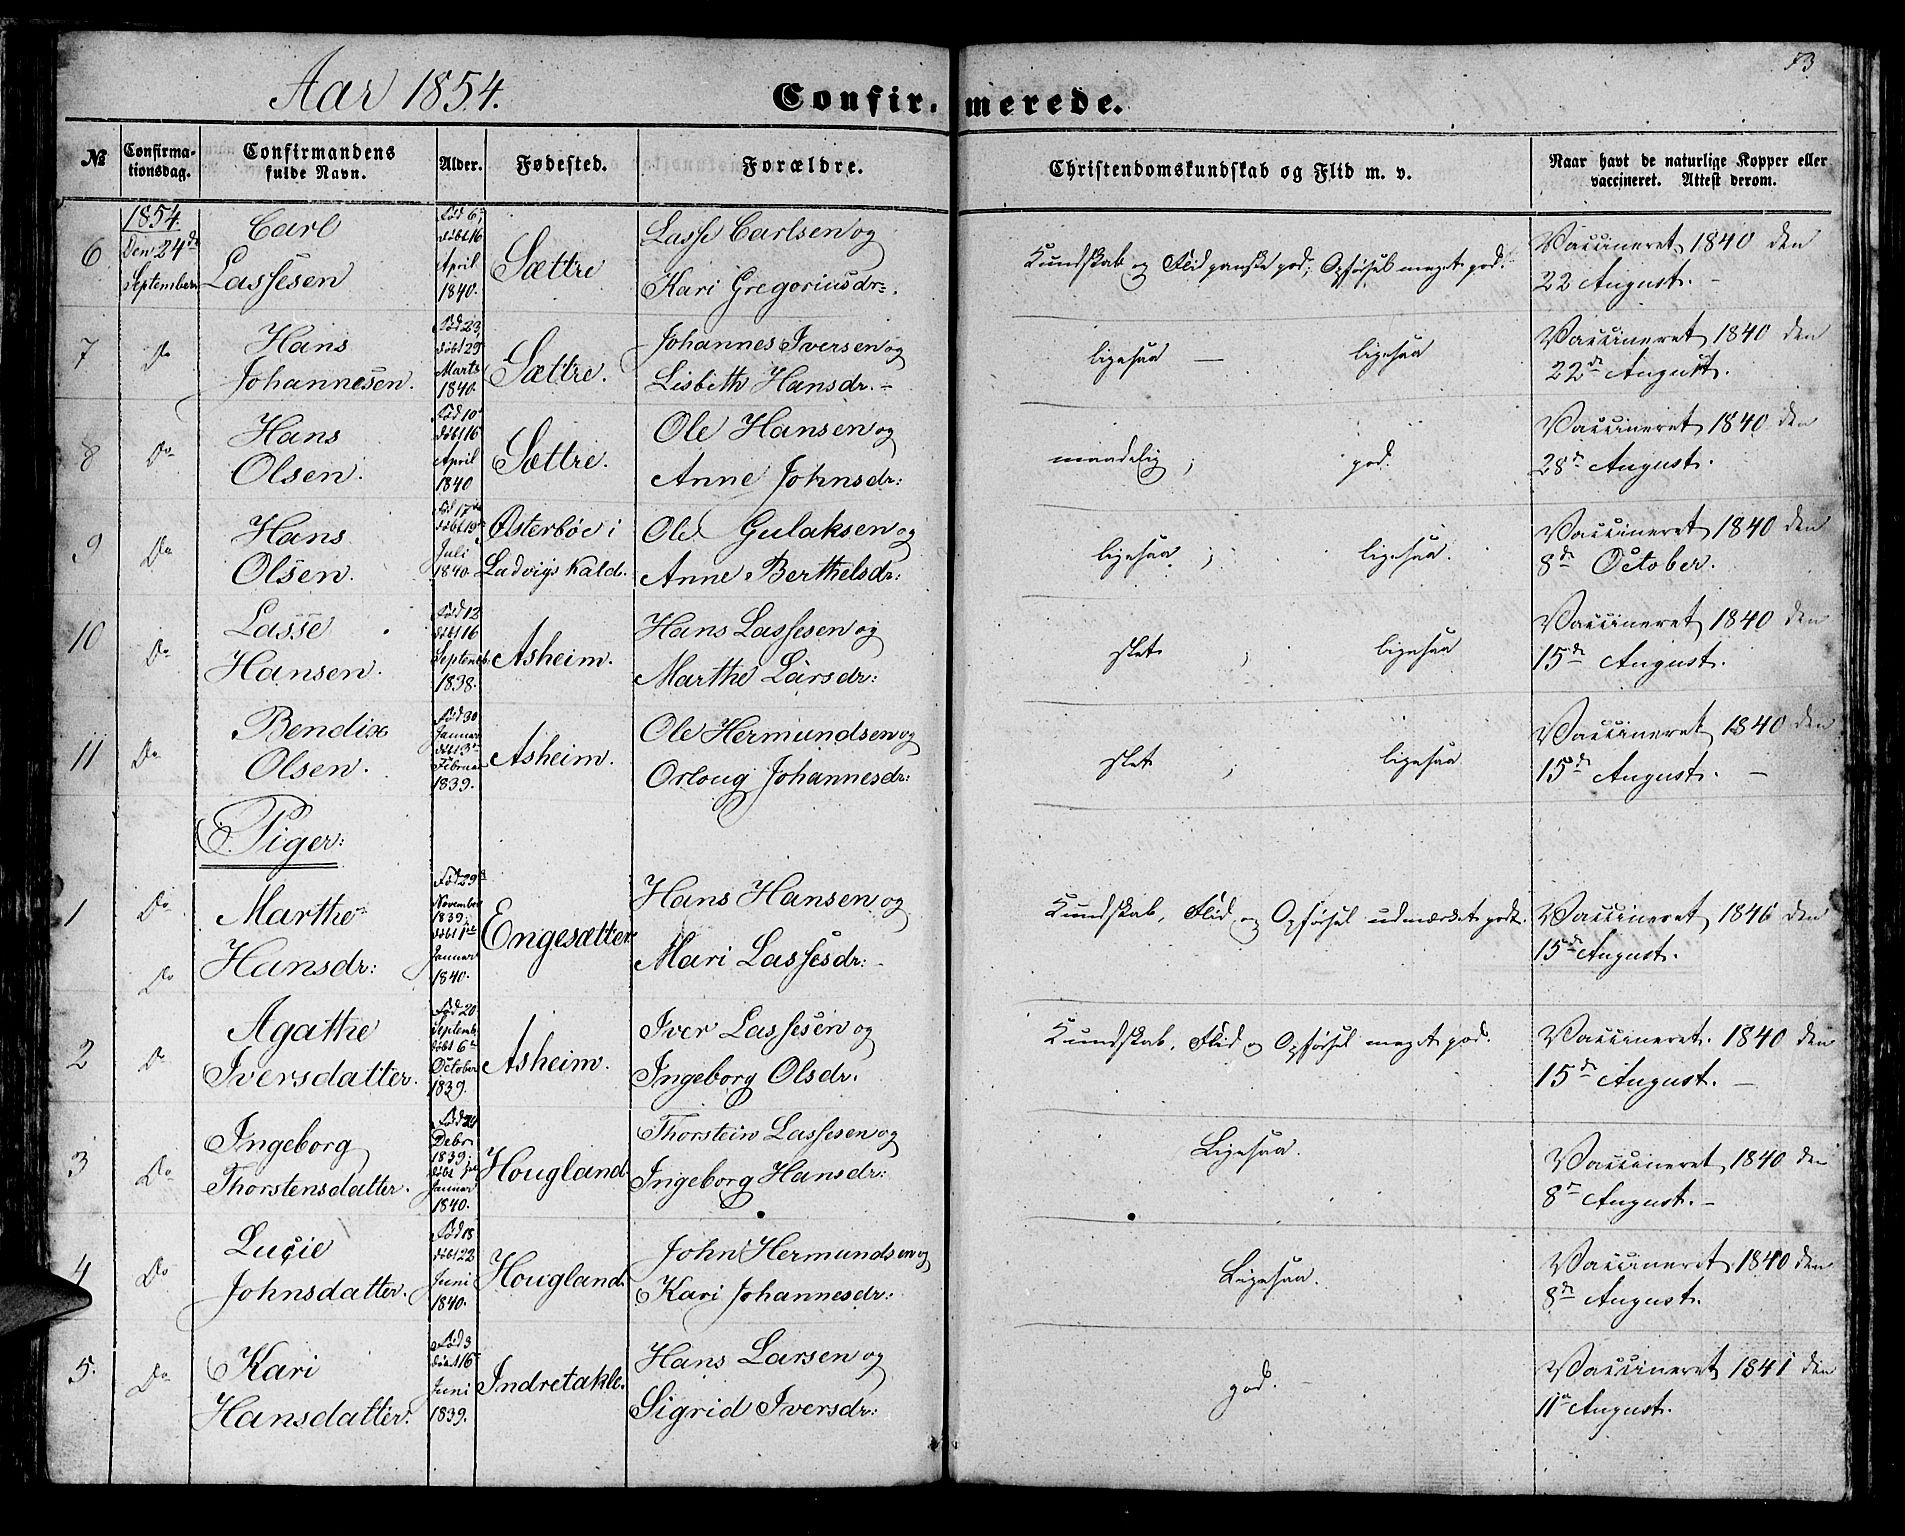 Aar 1854.
Confirmerede.
73
No
Confirmationsdag.
Confirmandens fulde Navn.
Alder.
Fødested.
Forældre.
Christendomskundskab og Flid m. v.
Naar havt de naturlige Kopper eller vaccineret. Attest derom.
6
1854.
Den 24de
September
Carl
Lassesen
Fød 6te
døbt 16
April
1840.
Sættre
Lasse Carlsen og
Kari Gregoriusdr.
Kundskab og Flid ganske god; Opførsel meget god.
Vaccineret 1840 den
22 August. –
7
Do
Hans
Johannesen.
Fød 23,
døbt 29
Marts
1840.
Sættre.
Johannes Iversen og
Lisbeth Hansdr. –
ligesaa — ligesaa
Vaccineret 1840 den
22de August.
8
Do
Hans
Olsen.
Fød 10
døbt 16
April
1840
Sættre.
Ole Hansen og
Anne Johnsdr:
maadelig; god.
Vaccineret 1840 den
28de August.
9
Do
Hans
Olsen.
Fød 17de
døbt 19de
Juli
1840.
Østerbøe i
Ladvigs Kald.
Ole Gulaksen og
Anne Berthelsdr:
ligesaa; ligesaa.
Vaccineret 1840 den
8de October.
10
Do
Lasse
Hansen.
Fød 12
døbt 16
Septemb.
1838.
Asheim.
Hans Lassesen og
Marthe Larsdr:
slet; ligesaa
Vaccineret 1840 den
15de August.
11
Do
Bendix
Olsen.
Fød 30
Januar
døbt 3de
Februar
1839.
Asheim.
Ole Hermundsen og
Orloug Johannesdr:
slet; ligesaa
Vaccineret 1840 den
15de August. –
Piger:
1
Do
Do
Marthe
Hansdr:
Fød 29
November
1839;
døbt 1te
Januar
1840.
Engesætter
Hans Hansen og
Mari Lassesdr: –
Kundskab, Flid og Opførsel udmærket godt.
Vaccineret 1840 den
15de August.
2
Do
Agathe
Iversdatter.
Fød 20
Septemb.
døbt 6te
October
1839.
Asheim.
Iver Lassesen og
Ingeborg Olsdr.
Kundskab, Flid og Opførsel meget god.
Vaccineret. 1840 den
15de August. –
3
Do
Ingeborg
Thorstensdatter.
Debr
1839;
døbt
Januar
1840.
Hougland.
Thorstein Lassesen og
Ingeborg Hansdr:
Ligesaa.
Vaccineret 1840 den
8de August. –
4
Do
Lucie
Johnsdatter.
Fød 18
døbt 22
Juni
1840.
Hougland.
John Hermundsen og
Kari Johannesdr:
Ligesaa.
Vaccineret 1840 den
8de August.
5.
Do
Kari
Hansdatter.
Fød 3
døbt 16
Juni
1839.
Indretakle.
Hans Larsen og
Sigrid Iversdr:
god. –
Vaccineret 1841 den
11te August.